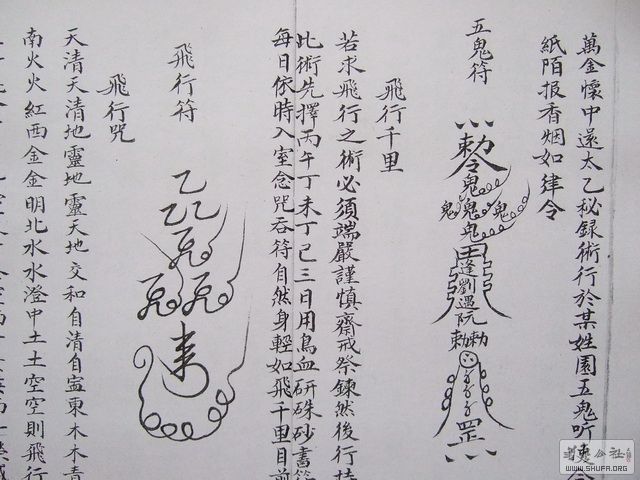 萬金懷中還太乙秘録術行於某姓園五鬼听使令
紙陌报香烟如律令
五鬼符
勅令
鬼
鬼鬼鬼
鬼
逢劉遇阮
勅勅
罡
飛行千里
若求飛行之術必須端嚴謹慎齋戒祭鍊然後行持
此術先擇丙午丁未丁巳三日用鳥血研硃砂書符
每日依時入室念咒吞符自然身輕如飛千里目前
飛行符
飛行咒
天清天清地靈地靈天地交和自清自寍東木木青
南火火紅西金金明北水水澄中土土空空則飛行
WWW.SHUFA.ORG